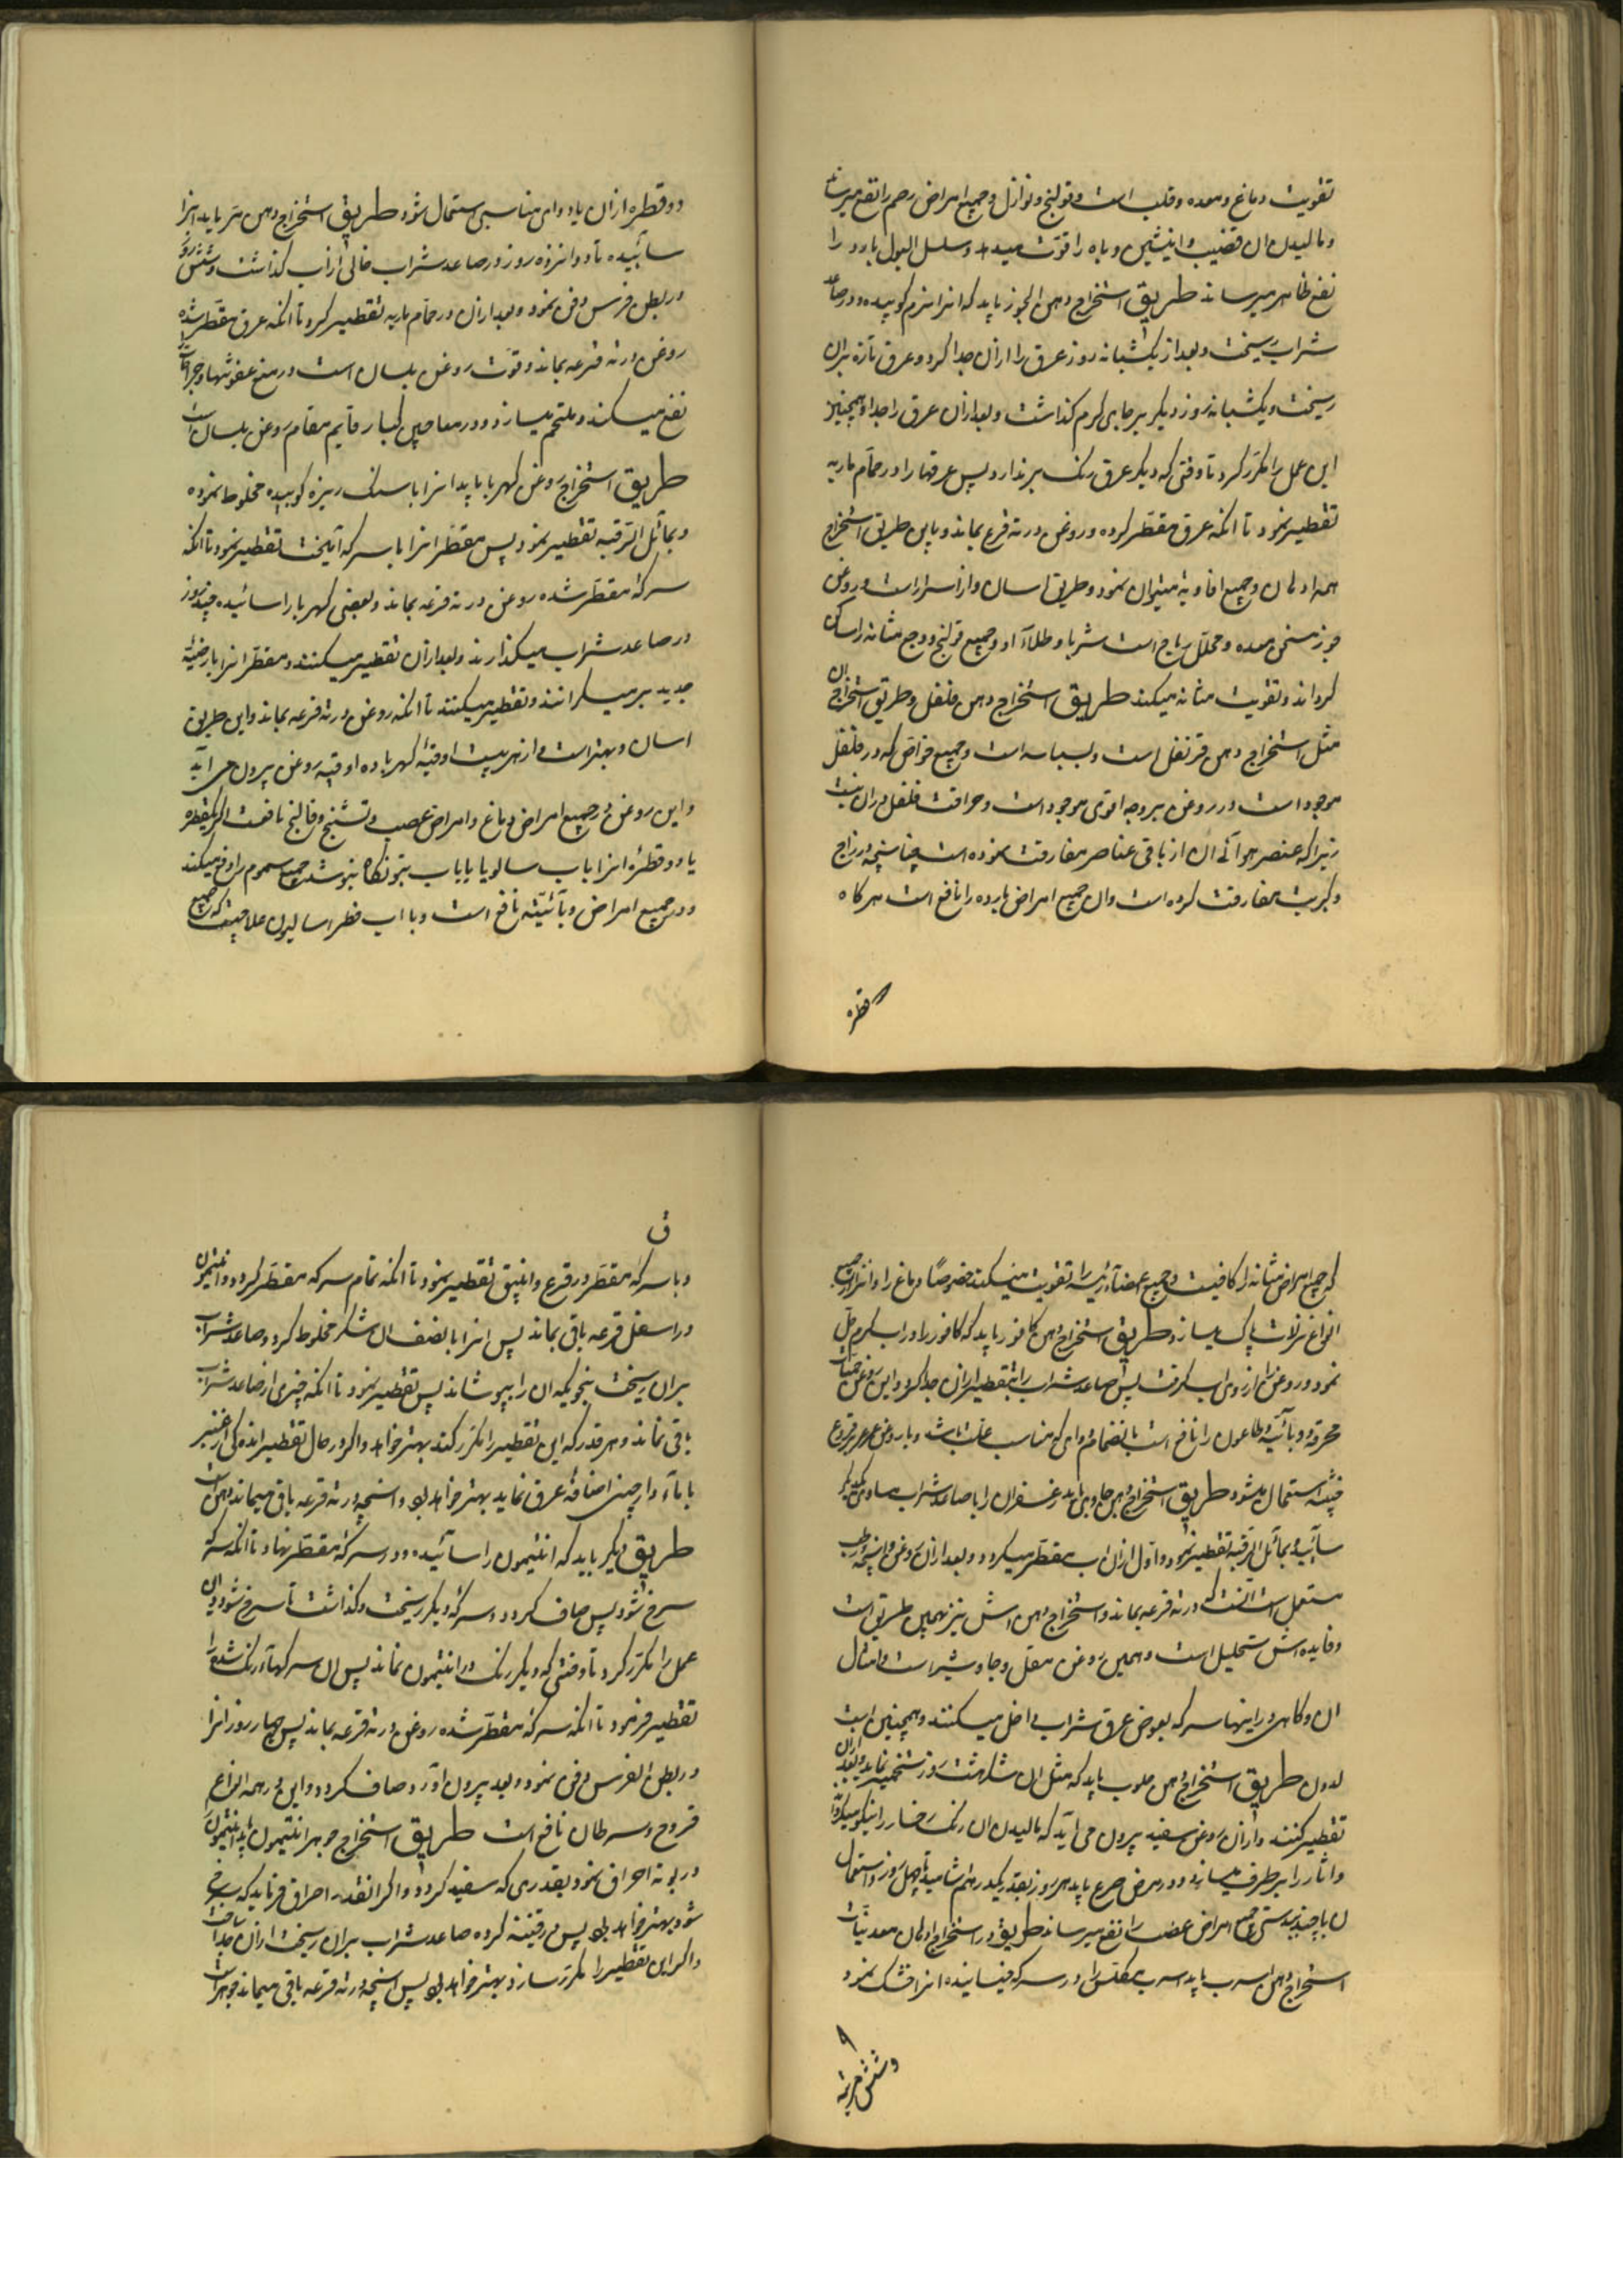 تقویت دماغ و معده و قلب است و قولنج و نوازل و جمیع امراض رحم را نفع میرساند
و مالیدن ان قضیب و انیثین و باه را قوّت میدهد و سلسل البول بارد را
نفع ظاهر میرساند طریق استخراج دهن الجوز باید که انرا نرم کوبیده و در صاعد
شراب ریخت و بعد از یکشبانه روز عرق را ازان جدا کرد و عرق تازه بران
ریخت و یکشبانه روز دیکر بر جای کرم کذاشت و بعد ازان عرق را جدا و همچنین
این عمل را مکرّر کرد تا وقتی که دیکر عرق رنک برندارد پس عرقها را در حمّام ماریه
تقطیر نمود تا انکه عرق مقطّر کرده و روغن در ته قرع بماند و باین طریق استخراج
همه ادهان و جمیع افاویه میتوان نمود و طریق اسان و از اسرار است و روغن
جوز مسخن معده و محلّل ریاح است شربا و طلاءً او و جمیع قولنج و وجع مثانه را ساکن
کرداند و تقویت مثانه میکند طریق استخراج دهن فلفل و طریق استخراج ان
مثل استخراج دهن قرنفل است و بسباسه است و جمیع خواصّ که در فلفل
موجود است در روغن بر وجه اقوی موجود است و حرافت فلفل دران نیست
زیرا که عنصر هوائی ان از باقی عناصر مفارقت نموده است چنانچه در زاج
و کبریت مفارقت کرده است و ان جمیع امراض بارده را نافع است هر کاه
قطره
دو قطره ازان با دوای مناسبی استعمال شود طریق استخراج دهن متر باید انرا
سائیده تا دوانزده روز در صاعد شراب خالی از آب کذاشت و شش روز
در بطن فرس دفن نمود و بعد ازان در حمّام ماریه تقطیر کرد تا انکه عرق مقطّر شده
روغن در ته قرعه بماند و قوّت روغن بلسان است در منع عفونتها و جراحات را
نفع میکند و ملتحم میسازد و در معاجین کبار قایم مقام روغن بلسان است
طریق استخراج روغن کهربا باید انرا با سنک ریزه کوبیده مخلوط نموده
و بمائل الرّقبه تقطیر نمود پس مقطّر انرا با سرکه آمیخت تقطیر نمود تا انکه
سرکهٔ مقطّر شده روغن در ته قرعه بماند و بعضی کهربا را سائیده چند روز
در صاعد شراب میکذارند و بعد ازان تقطیر میکنند و مقطّر انرا بارضیّهٔ
جدید بر میکردانند و تقطیر میکنند تا انکه روغن در ته قرعه بماند و این طریق
اسان و بهتر است و از هر بیست اوقیّهٔ کهربا ده اوقیه روغن بیرون می اید
و این روغن در جمیع امراض دماغ و امراض عصب و تشنّج و فالج نافعست اکر یکقطره
یا دو قطرهٔ انرا باب سالویا یا باب بتونکا بنوشند جمیع سموم را دفع میکند
و در جمیع امراض وبائیّه نافع است و با اب فطر اسالیون علاجیست که جمیع
که جمیع امراض مثانه را کافیست و جمیع اعضآء رئیسه را تقویت میکند خصوصًا دماغ را و انرا از جمیع
انواع نزلات پاک میسازد طریق استخراج دهن کافور باید که کافور را در اب کرم حلّ
نمود و روغن را از روی اب کرفت پس صاعد شراب را بتقطیر ازان جدا کرد و این روغن حمیات
محرقه و وبائیّه و طاعون را نافع است بانضمام دوای که مناسب علّت باشد و با روغن عرعر قروع
خبیثه استعمال میشود طریق استخراج دهن جاوی باید زعفران را با صاعد شراب مساوی یکدیکر
سائید و بمائل الرّقبه تقطیر نمود و اوّل ازان اب مقطّر میکردد و بعد ازان روغن و انچه در طب
مستعمل است انست که در ته قرعه بماند و استخراج دهن اش نیز بهمین طریق است
و فایده اش تحلیل است و همین روغن مقل و جاوشیر است و امثال
ان و کاهی در اینها سرکه بعوض عرق شراب داخل میکنند و همچنین است
لدون طریق استخراج دهن حلوب باید که مثل ان شکر هشت روز تخمیر نماید و بعد ازان
تقطیر کنند و ازان روغن سفید بیرون می اید که مالیدن ان رنک رخسار را نیکو میکرداند
و اثار را بر طرف میسازد و در مرض صرع باید هر روز بقدر یکدرهم اشامید تا چهل روز و استعمال
ان با چند بیدستر جمیع امراض عصب را نفع میرساند طریق در استخراج ادهان معدنیّات
استخراج دهن اسرب باید اسرب مکلّس را در سرکه خیسانیده انرا خشک نمود
و شش مرتبه
ق
و با سرکهٔ مقطّر در قرع و انبیق تقطیر نمود تا انکه تمام سرکه مقطّر کردد و انتیمون
در اسفل قرعه باقی بماند پس انرا با نصف ان شکر مخلوط کرد و صاعد شراب
بران ریخت بنحویکه ان را بپوشاند پس تقطیر نمود تا انکه چیزی از صاعد شراب
باقی نماند و هر قدر که این تقطیر را مکرّر کند بهتر خواهد و اکر در حال تقطیر اندکی از عنبر
یا مآء دارچینی اضافهٔ عرق نماید بهتر خواهد بود و انچه در ته قرعه باقی میماند دهن است
طریق دیکر باید که انتیمون را سائیده و در سرکهٔ مقطّر نهاد تا انکه سرکه
سرخ شود پس صاف کرد و سرکهٔ دیکر ریخت و کذاشت تا سرخ شود و این
عمل را مکرّر کرد تا وقتی که دیکر رنک در انتیمون نماند پس ان سرکهآء رنک شده را
تقطیر فرمود تا انکه سرکهٔ مقطّر شده روغن در ته قرعه بماند پس چهار روز انرا
در بطن الفرس دفن نمود و بعد بیرون آورد و صاف کرد و این در همه انواع
قروح و سرطان نافع است طریق استخراج جوهر انتیمون باید انتیمون را
در بوته احراق نمود بقدری که سفید کردد و اکر انقدر احراق فرماید که سرخ
شود بهتر خواهد بود پس در قنینه کرده صاعد شراب بران ریخت ازان جدا ساخت
و اکر این تقطیر را مکرّر سازد بهتر خواهد بود پس انچه در ته قرعه باقی میماند جوهر است